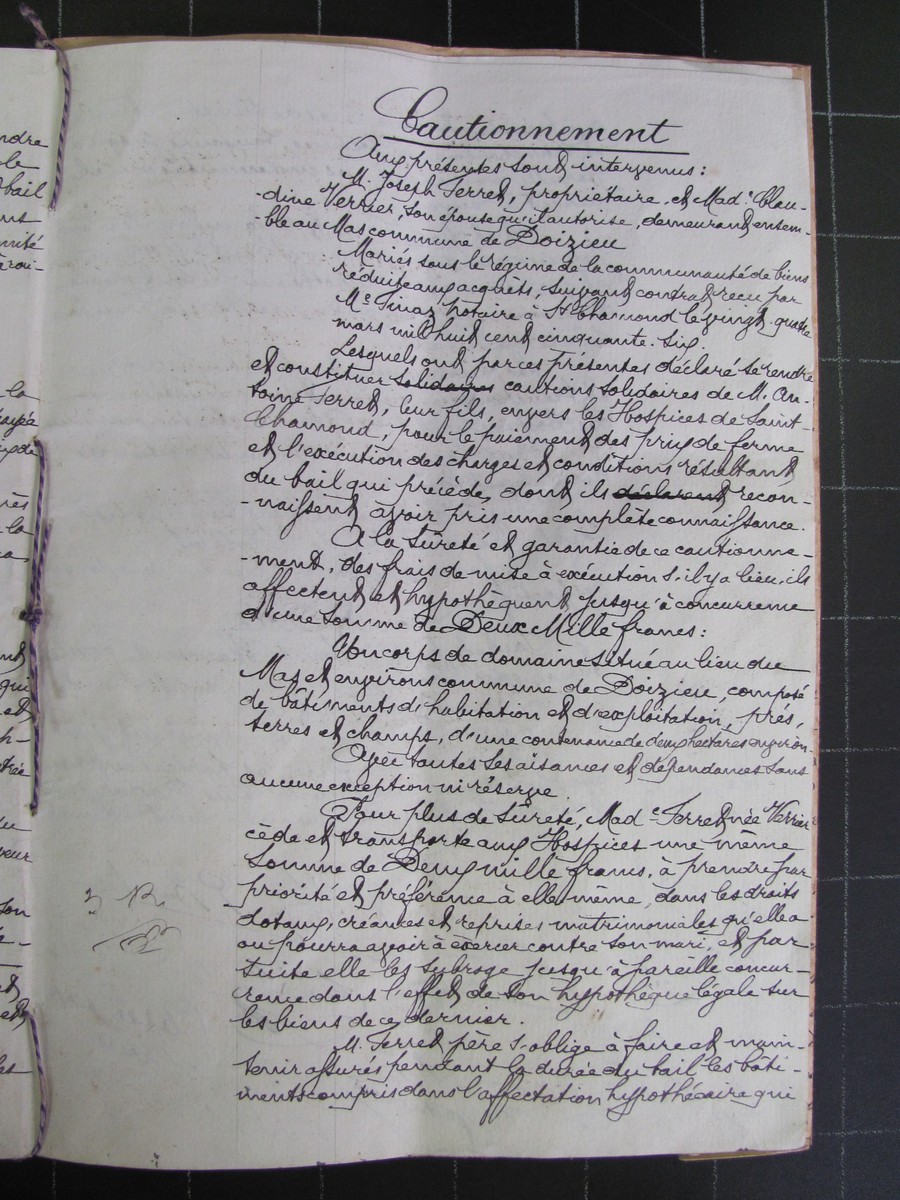 ndre
le
bail
ns
mité
la
la
qui
et
Cautionnement
Aux présentes sont intervenus :
M. Joseph Ferret, propriétaire, et Made Clau-
-dine Verrier, son épouse qu'il autorise, demeurant ensem-
-ble au Mas commune de Doizieu
Mariés sous le régime de la communauté de biens
réduite aux acquêts, suivant contrat reçu par
Me Finaz notaire à St Chamond le vingt quatre
mars mil huit cent cinquante-six.
Lesquels ont par ces présentes déclaré se rendre
et constituer solidaires cautions solidaires de M. An-
toine Ferret, leur fils, envers les Hospices de Saint-
Chamond, pour le paiement des prix de ferme
et l'exécution des charges et conditions résultant
du bail qui précède, dont ils déclarent recon-
-naissent avoir pris une complète connaissance.
A la sûreté et garantie de ce cautionne-
-ment, des frais de mise à exécution s'il y a lieu, ils
affectent et hypothèquent jusqu'à concurrence
d'une somme de Deux Mille francs :
Un corps de domaine situé au lieu du
Mas et environs commune de Doizieu, composé
de bâtiments d'habitation et d'exploitation, prés,
terres et champs, d'une contenance de deux hectares environ
Avec toutes ses aisances et dépendances sans
aucune exception ni réserve.
Pour plus de sûreté, Made Ferret née Verrier
cède et transporte aux Hospices une même
somme de Deux mille francs, à prendre par
priorité et préférence à elle même, dans les droits
dotaux, créances et reprises matrimoniales qu'elle a
ou pourra avoir à exercer contre son mari, et par
suite elle les subroge jusqu'à pareille concur-
rence dans l'effet de son hypothèque légale sur
les biens de ce dernier.
M. Ferret père s'oblige à faire et main-
tenir assurés pendant la durée du bail les bâti-
ments compris dans l'affectation hypothécaire qui